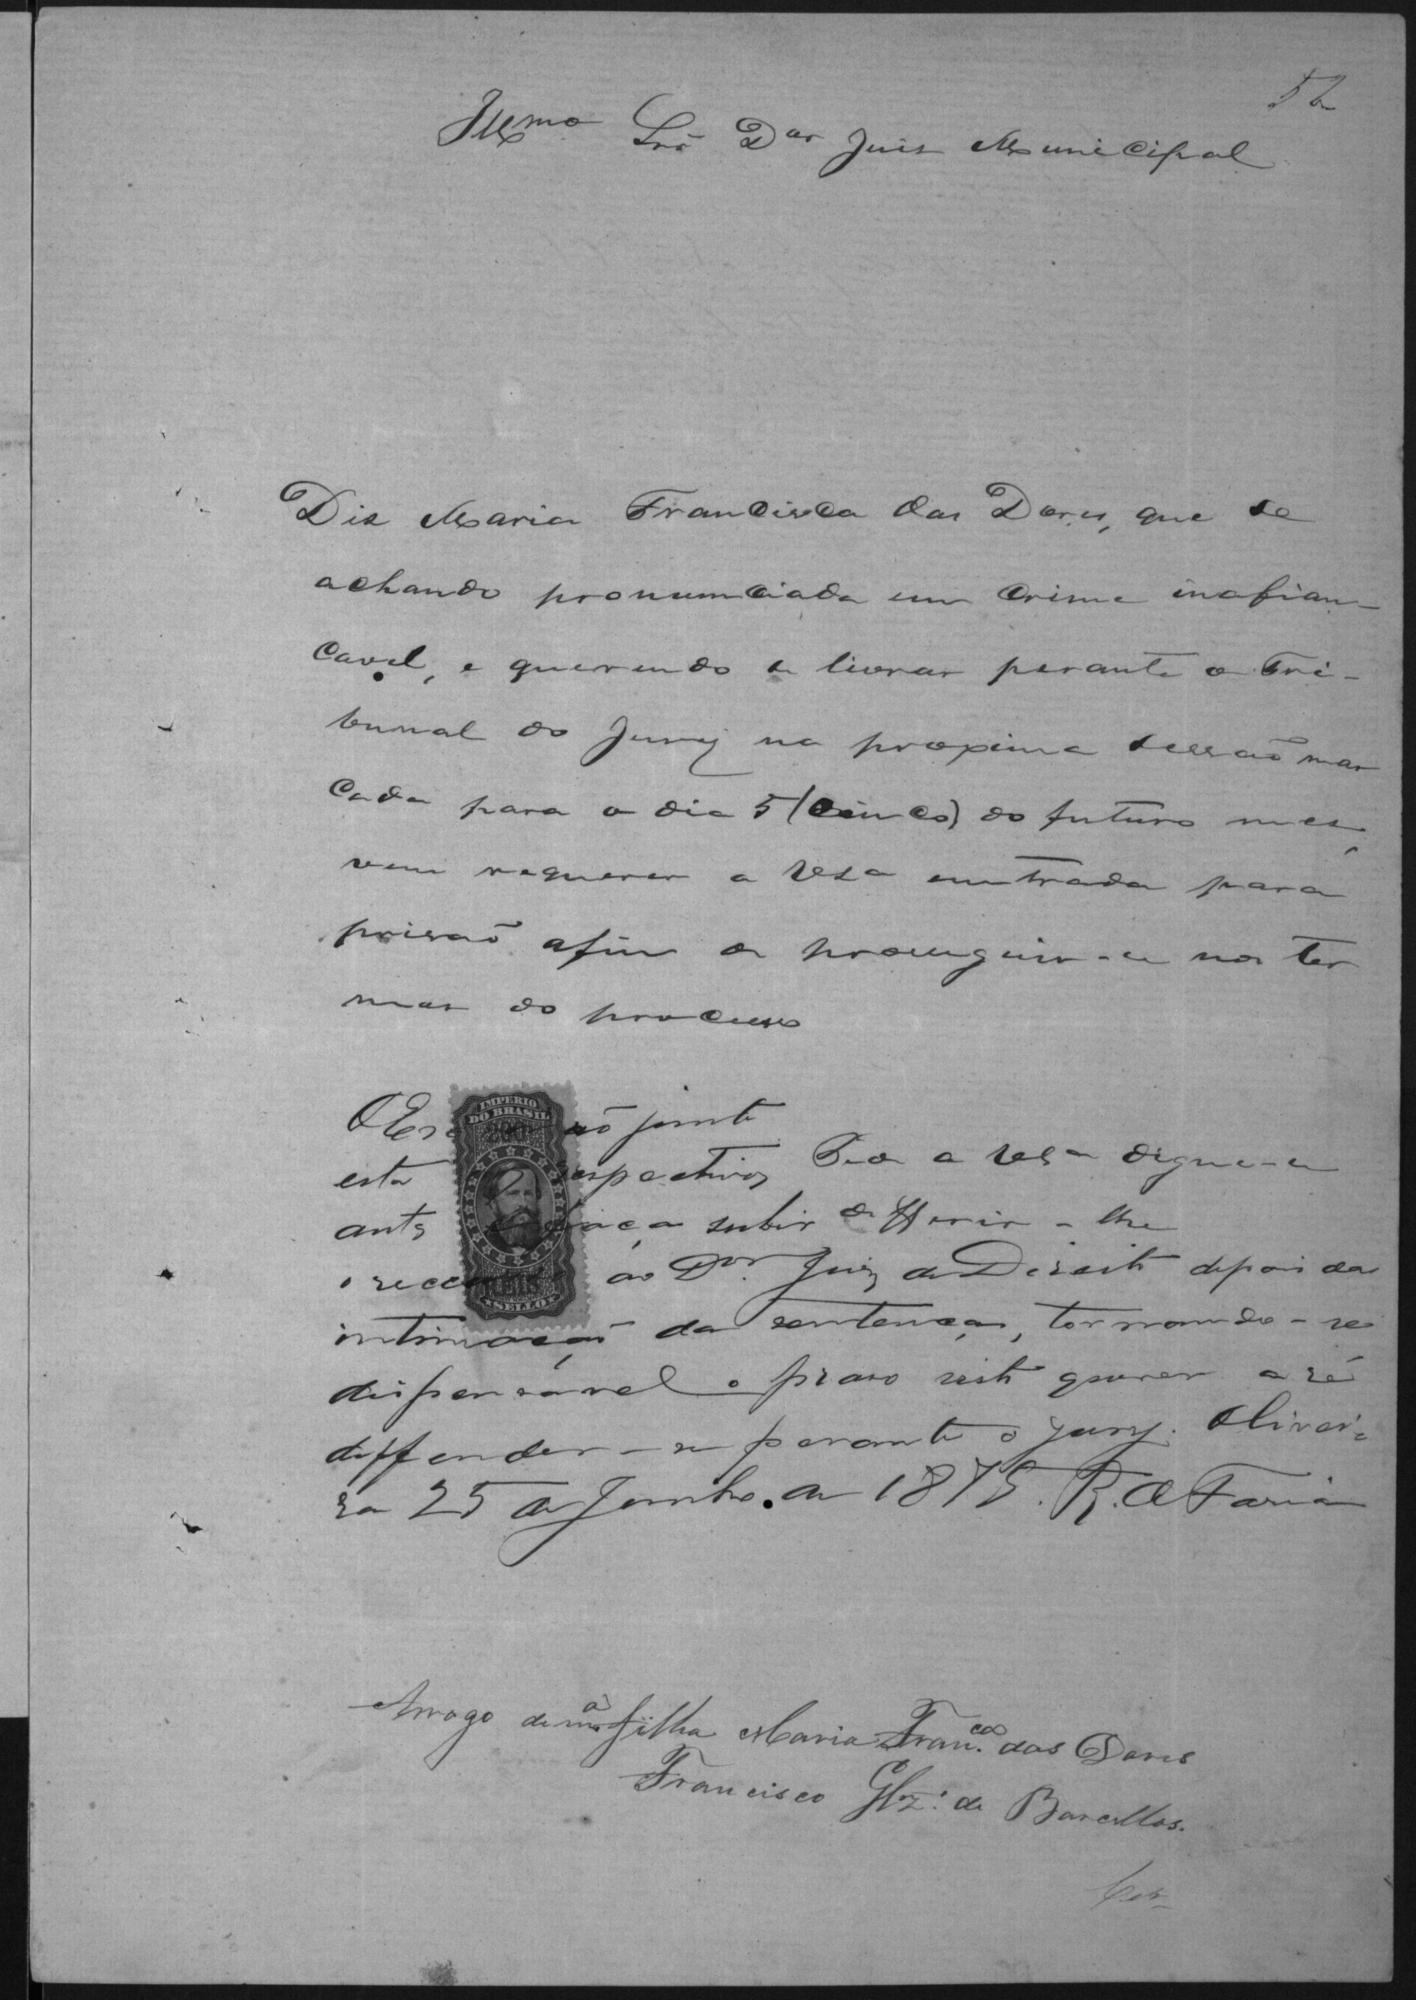 52
Illmo Snr. Dor Juis Municipal
Dis Maria Francisca das Dores, que se
achando pronumciada em crime inafian-
cavel, e querendo se livrar perante o Tri-
bunal do Jury na proxima sessão mar
cada para o dia 5 (Cinco) do futuro mes,
vem requerer a VSa emtrada para
prisaõ afim de proseguir-se nos ter
mos do processo
O Escrivão junte
esta respectivos P. a VSa digne-se
ants faça subir defferir-lhe
o recurso ao Dor. Juiz de Direito depois da
intimação da sentença, tornando-se
dispensavel o praso visto querer a ré
deffender-se perante o jury. Olivei-
ra 25 de Junho de 1875. R. O Faria
IMPERIO
DO BRASIL
200
SELLO
Arrogo de ma filha Maria Franca. das Dores
Francisco Glz. de Barcellos.